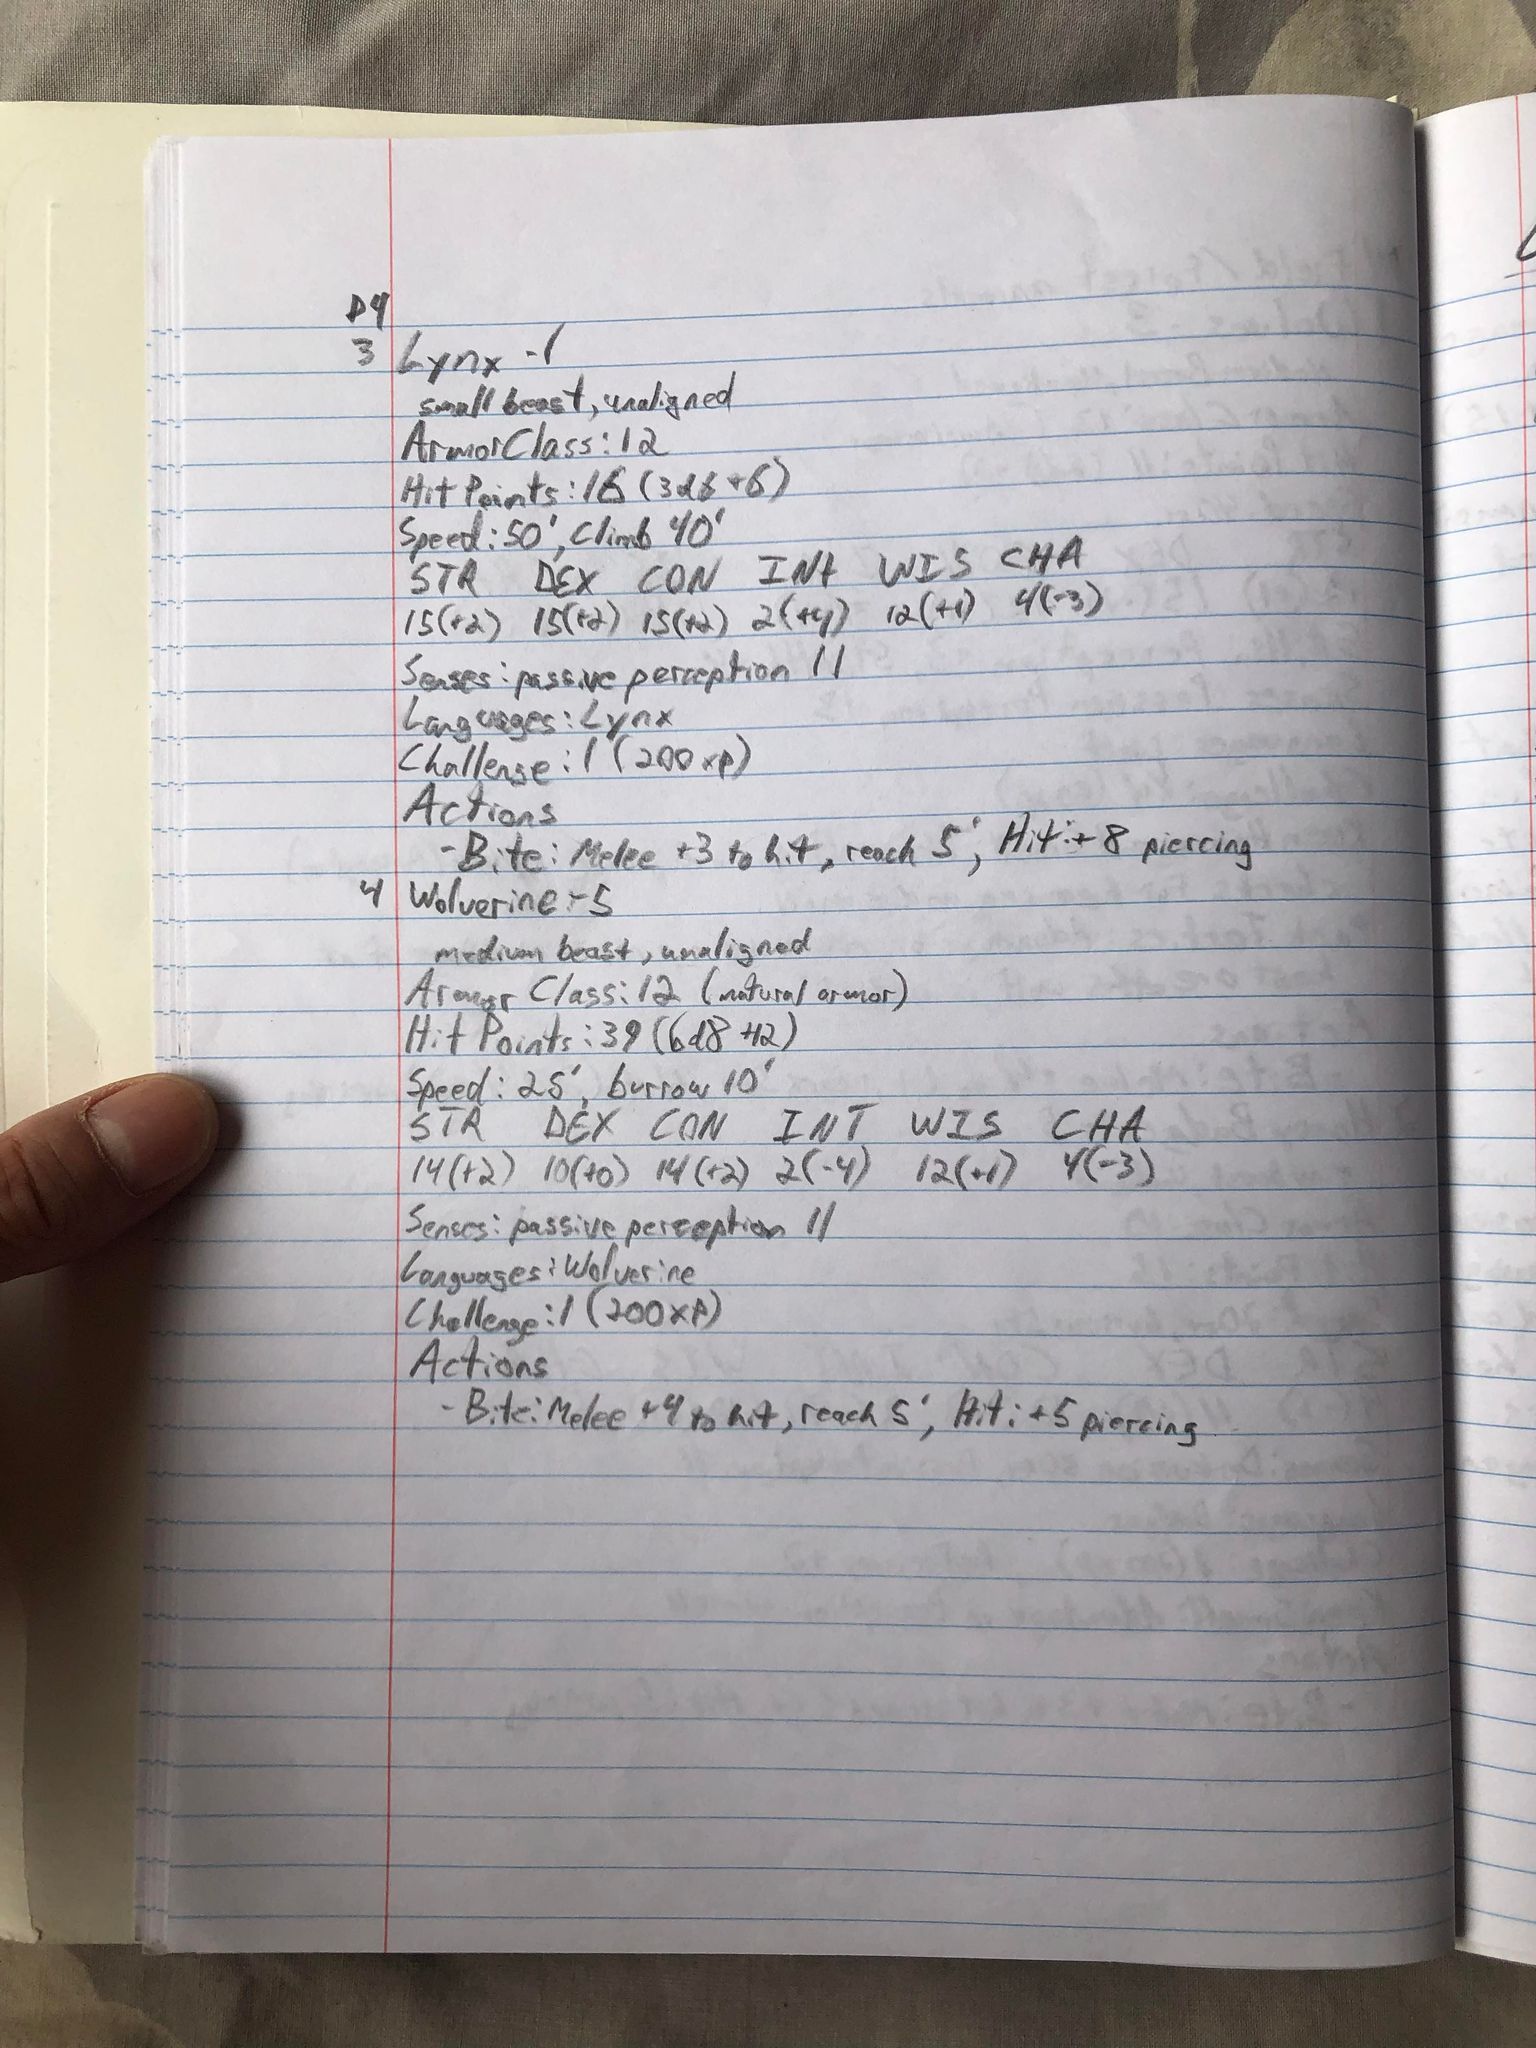 D4
3 Lynx -1
small beast, unaligned
Armor Class: 12
Hit Points: 16 (3d6 +6)
Speed: 50', Climb 40'
STR DEX CON INt WIS CHA
15(+2) 15(+2) 15(+2) 2(+4) 12(+1) 4(-3)
Senses: passive perception 11
Languages: Lynx
Challenge: 1 (200 xp)
Actions
- Bite: Melee +3 to hit, reach 5', Hit: +8 piercing
4 Wolverine -5
medium beast, unaligned
Armor Class: 12 (natural armor)
Hit Points: 39 (6d8 +12)
Speed: 25', burrow 10'
STR DEX CON INT WIS CHA
14(+2) 10(+0) 14(+2) 2(-4) 12(+1) 4(-3)
Senses: passive perception 11
Languages: Wolverine
Challenge: 1 (200 xp)
Actions
- Bite: Melee +4 to hit, reach 5', Hit: +5 piercing